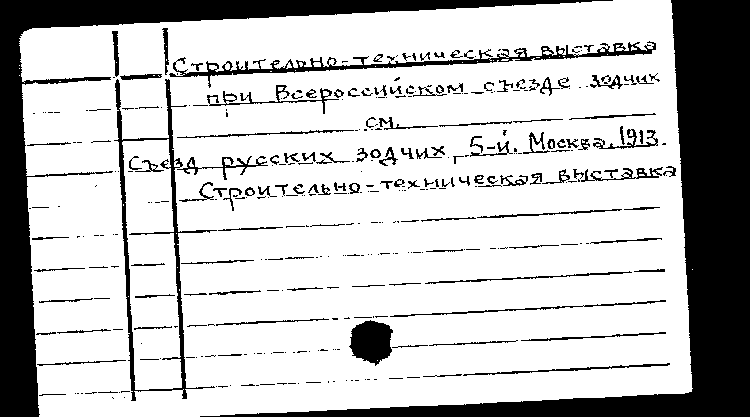 Строительно-техническая выставка
при Всероссийском съезде зодчих
см.
Съезд русских зодчих, 5-й. Москва. 1913.
Строительно-техническая выставка